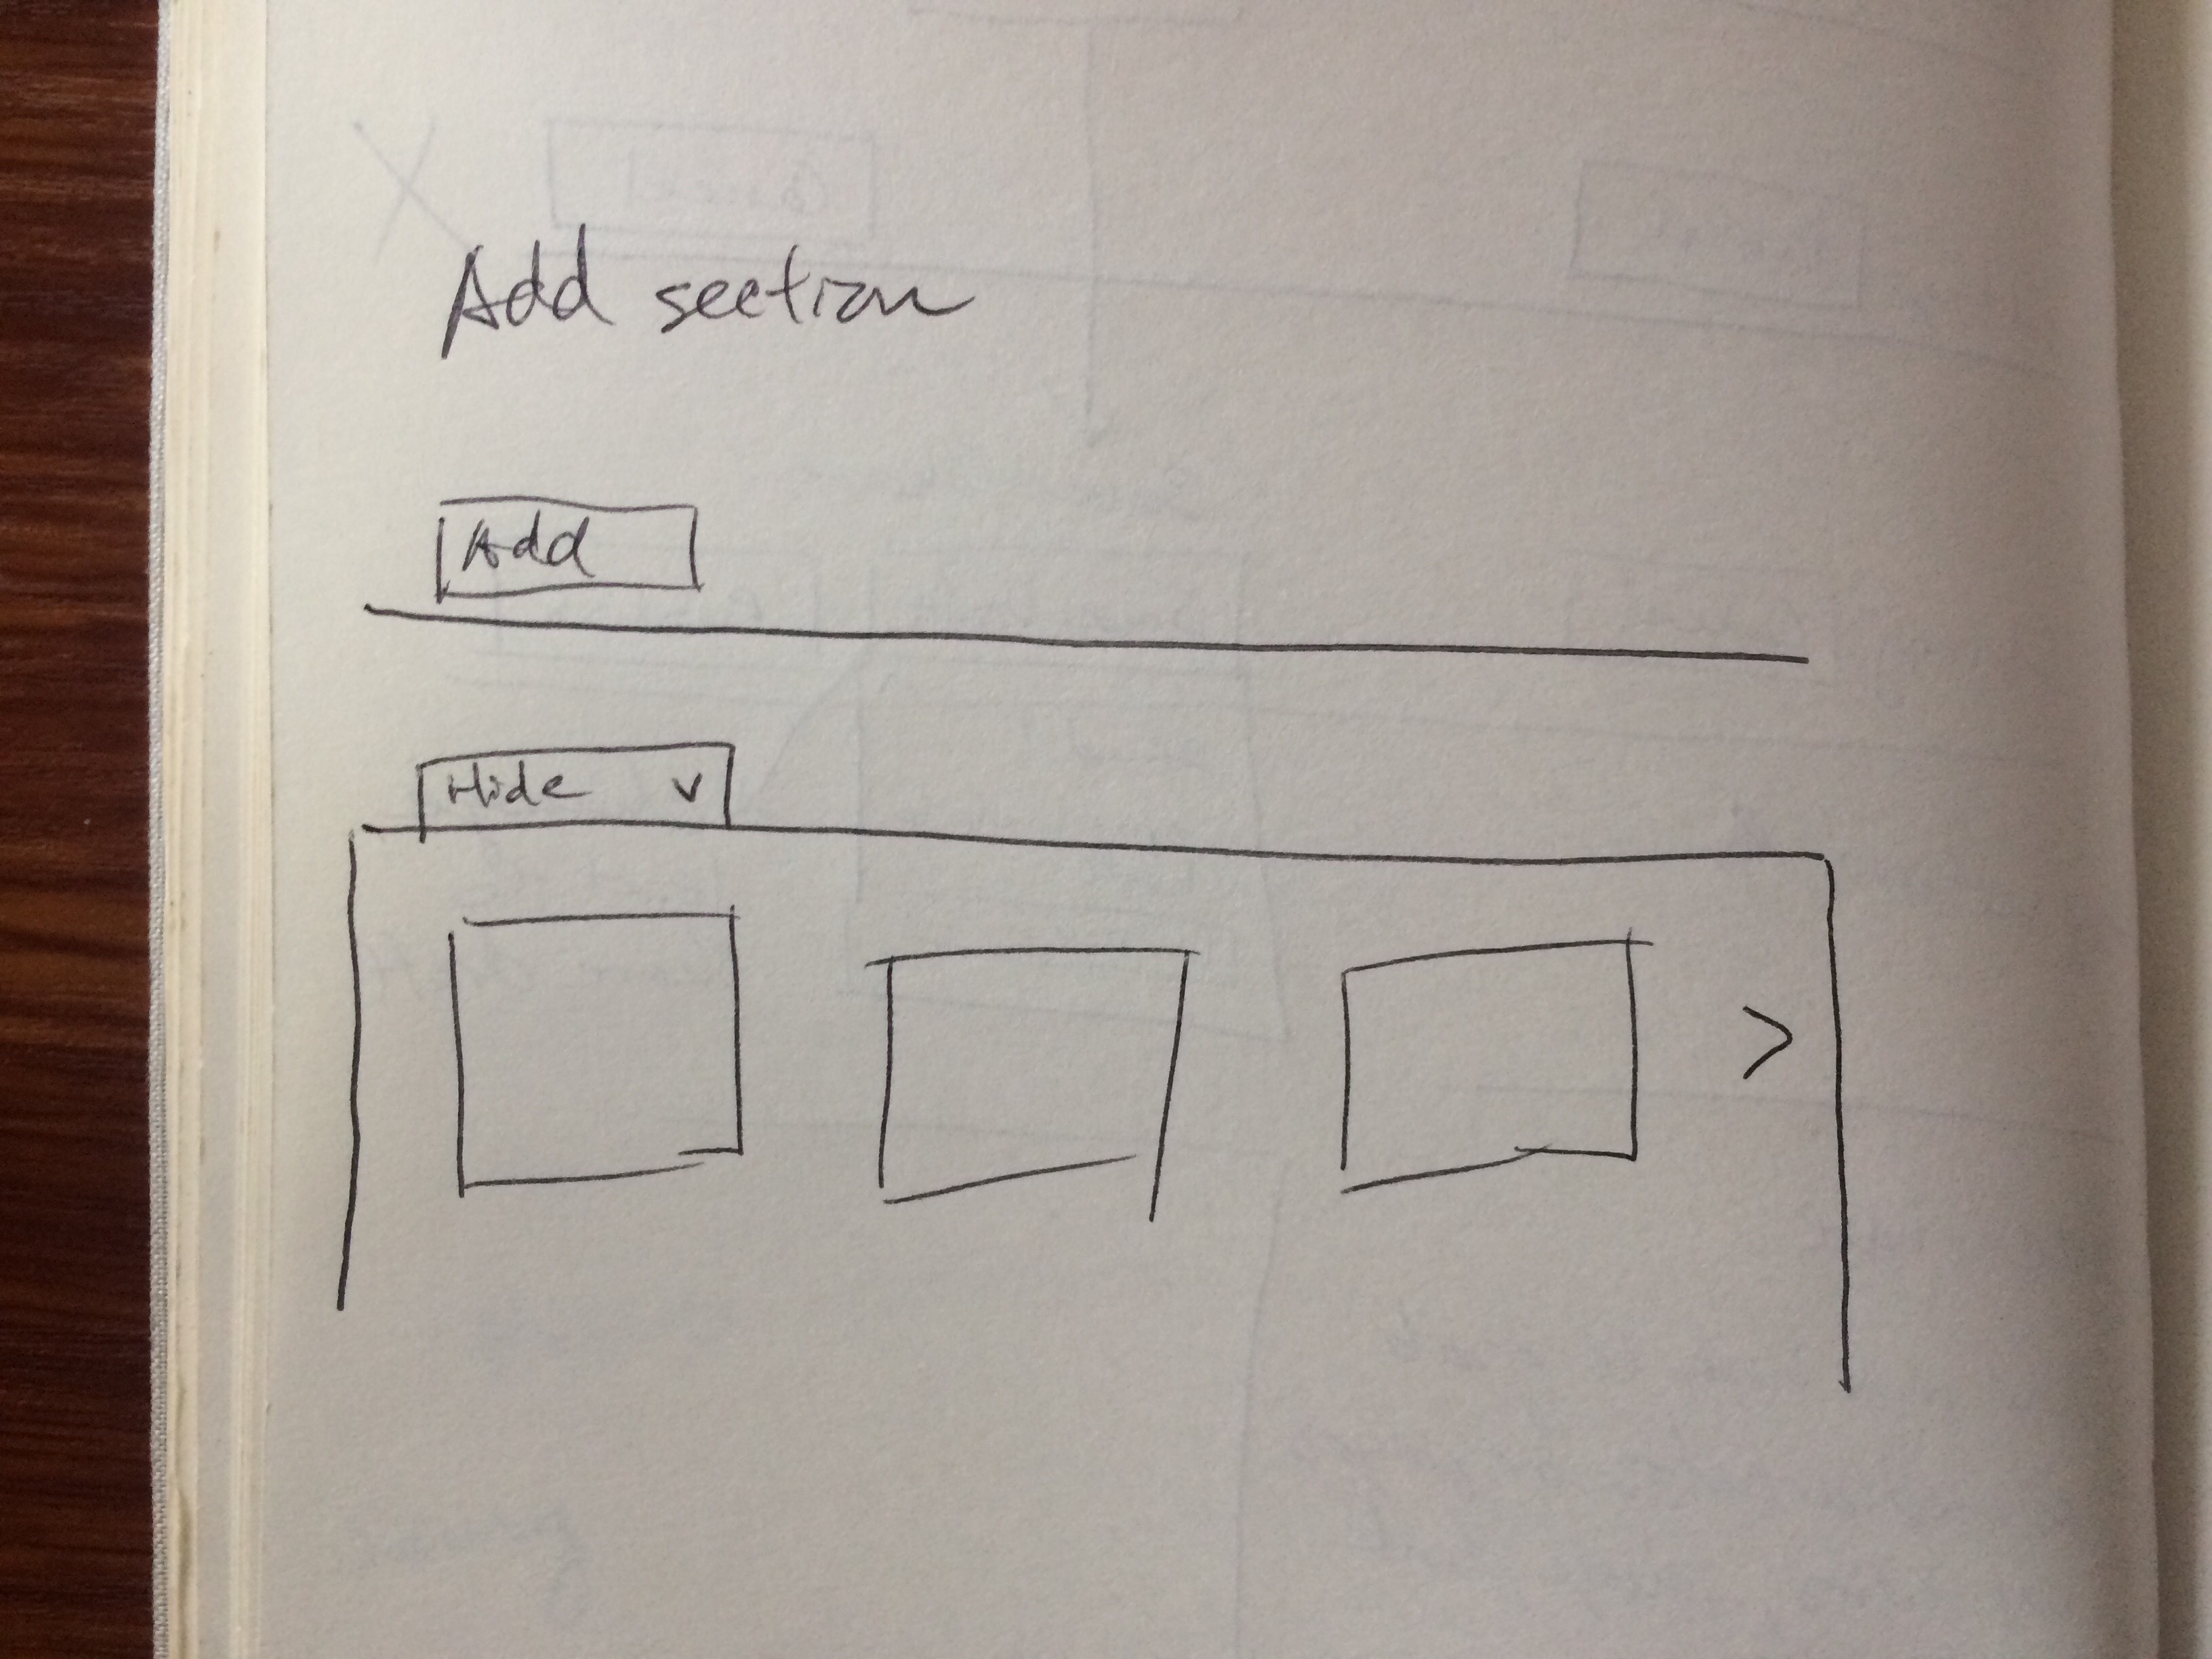 Add section
Add
Hide v
>